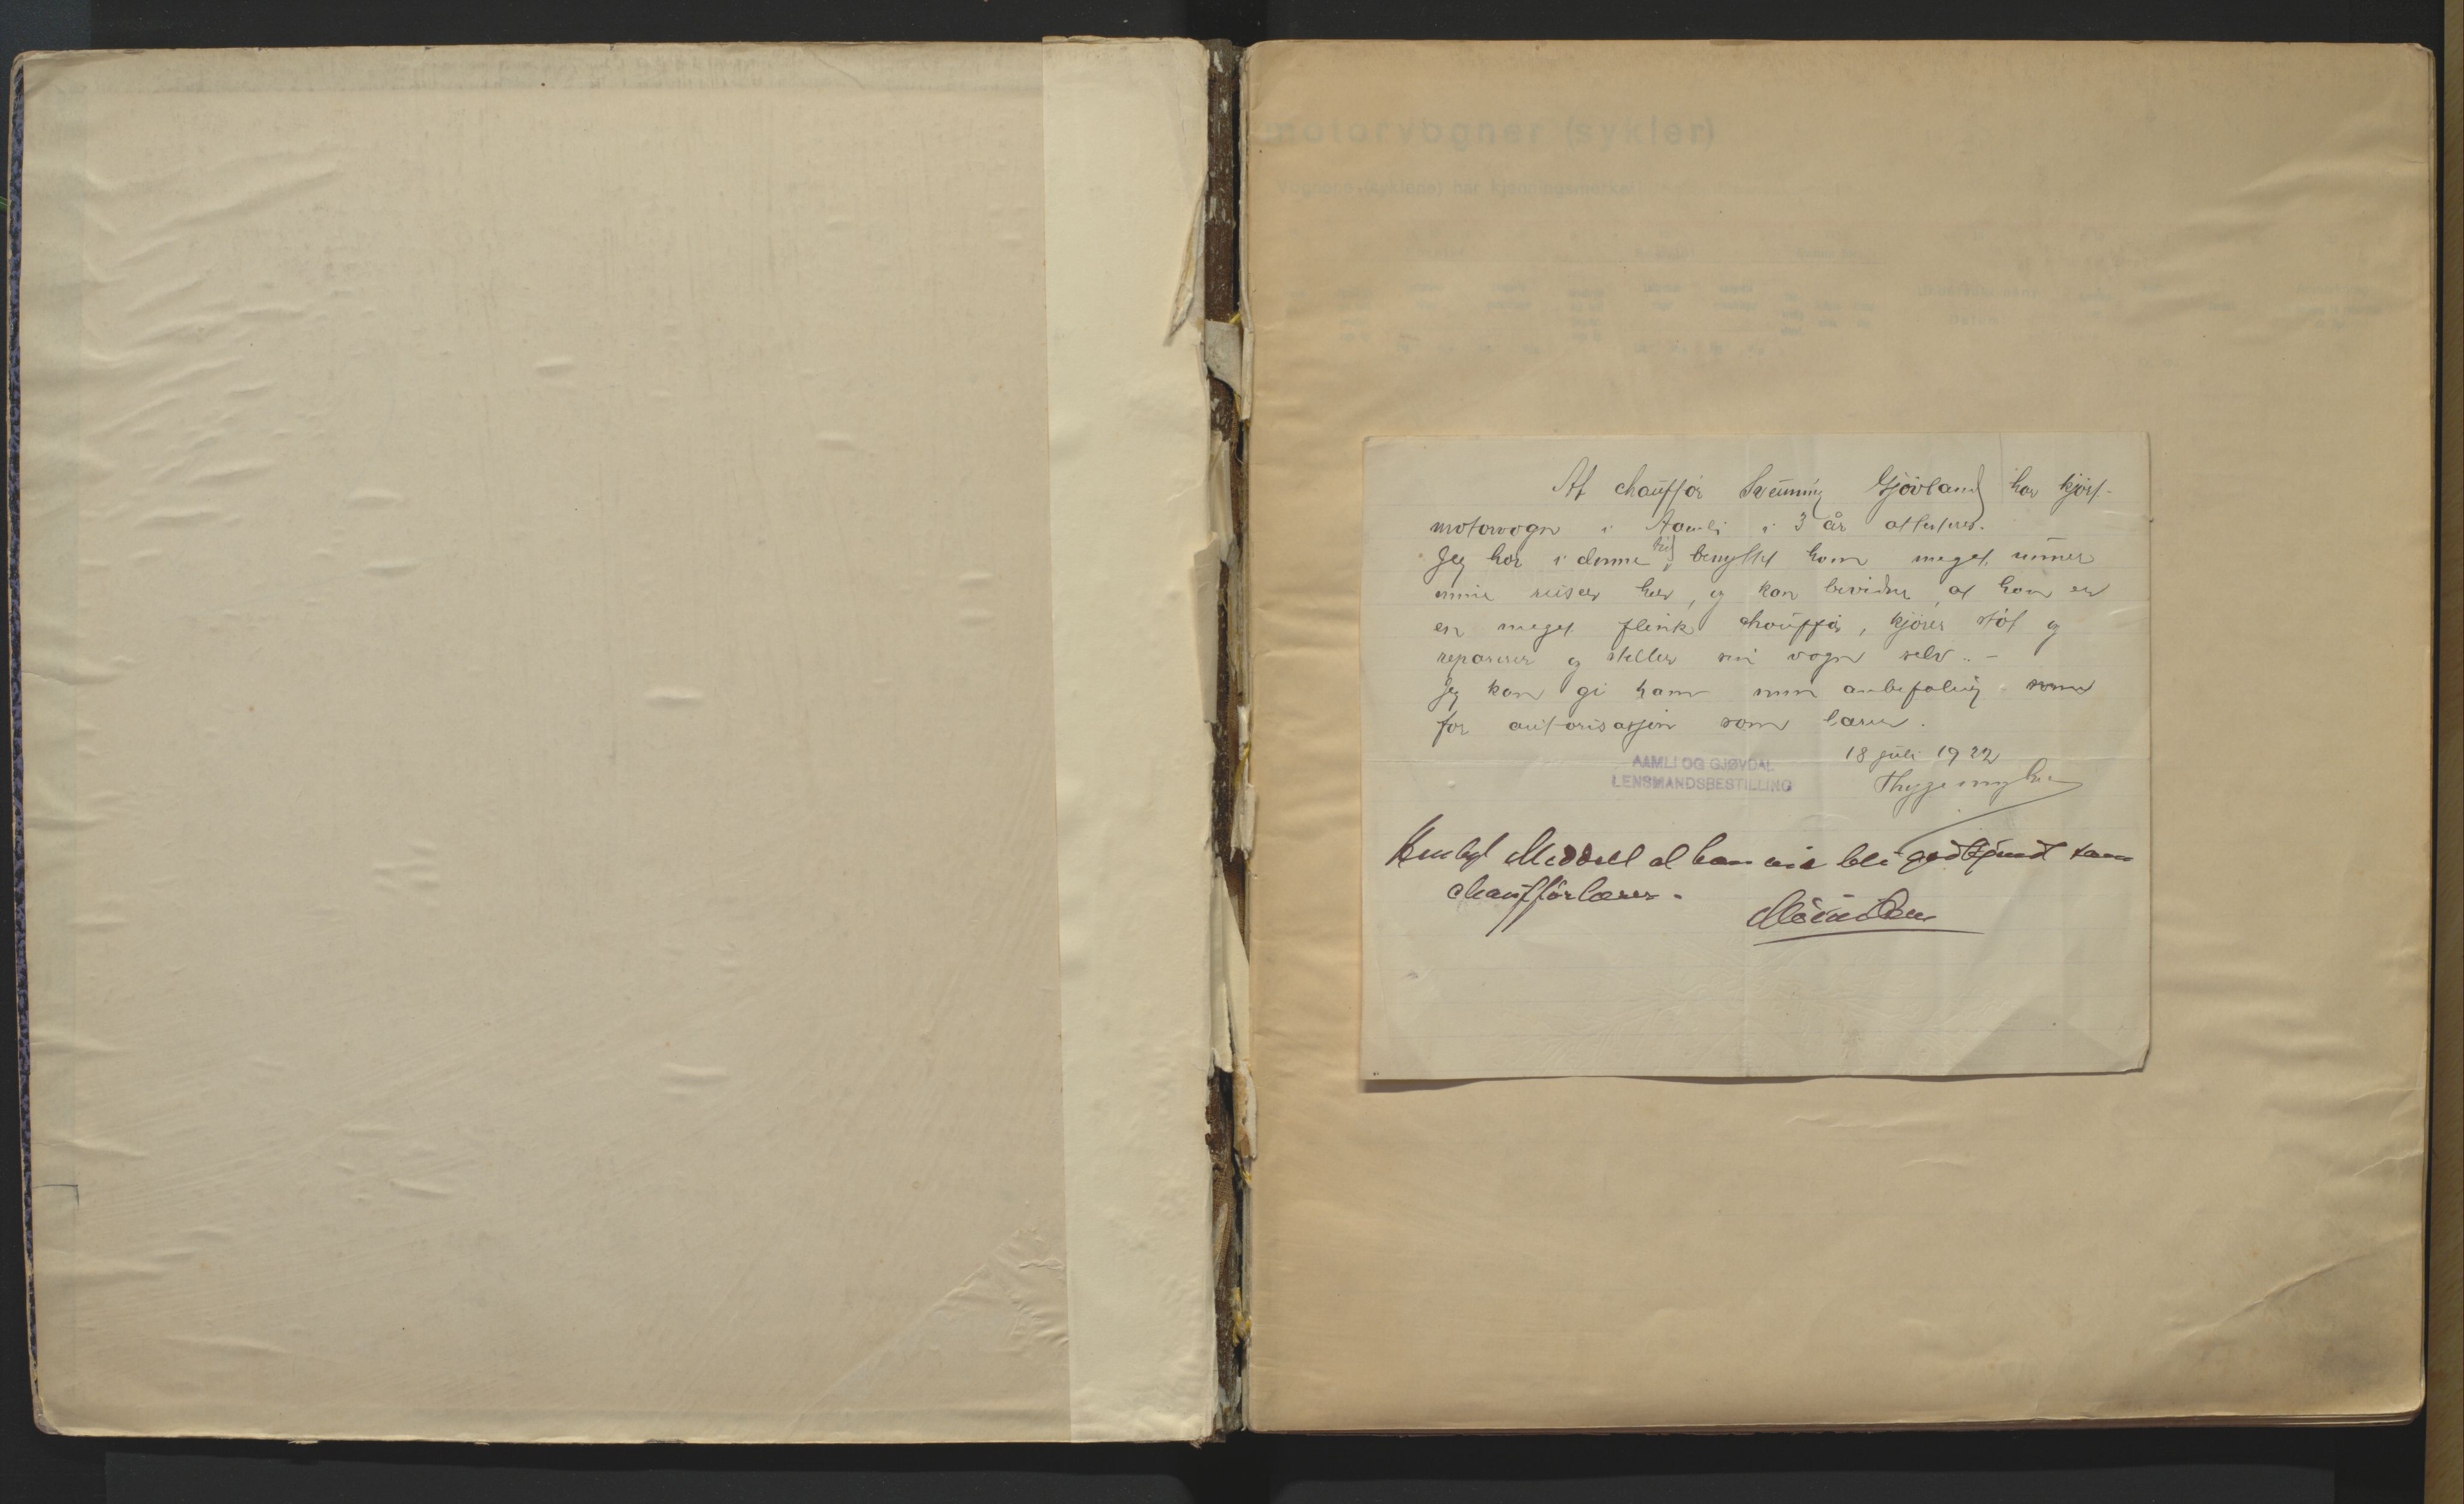 motorvogner (sykler)
Vognene (syklene) har kjenningsmerke:
At chauffør Sveinung Gjövland har kjört
motorvogn i Aamli i 3 år attesteres.
Jeg har i denne tid benyttet ham meget unner
mine reiser her, og kan bevidne at han er
en meget flink chauffør, kjörer støt og
reparerer og steller sin vogn selv. –
Jeg kan gi ham min anbefaling
for autorisasjon som lærer.
18 juli 1922
AAMLI OG GJØVDAL
LENSMANDSBESTILLING
Meddel at han bli godkjendt som
chaufførlærer.